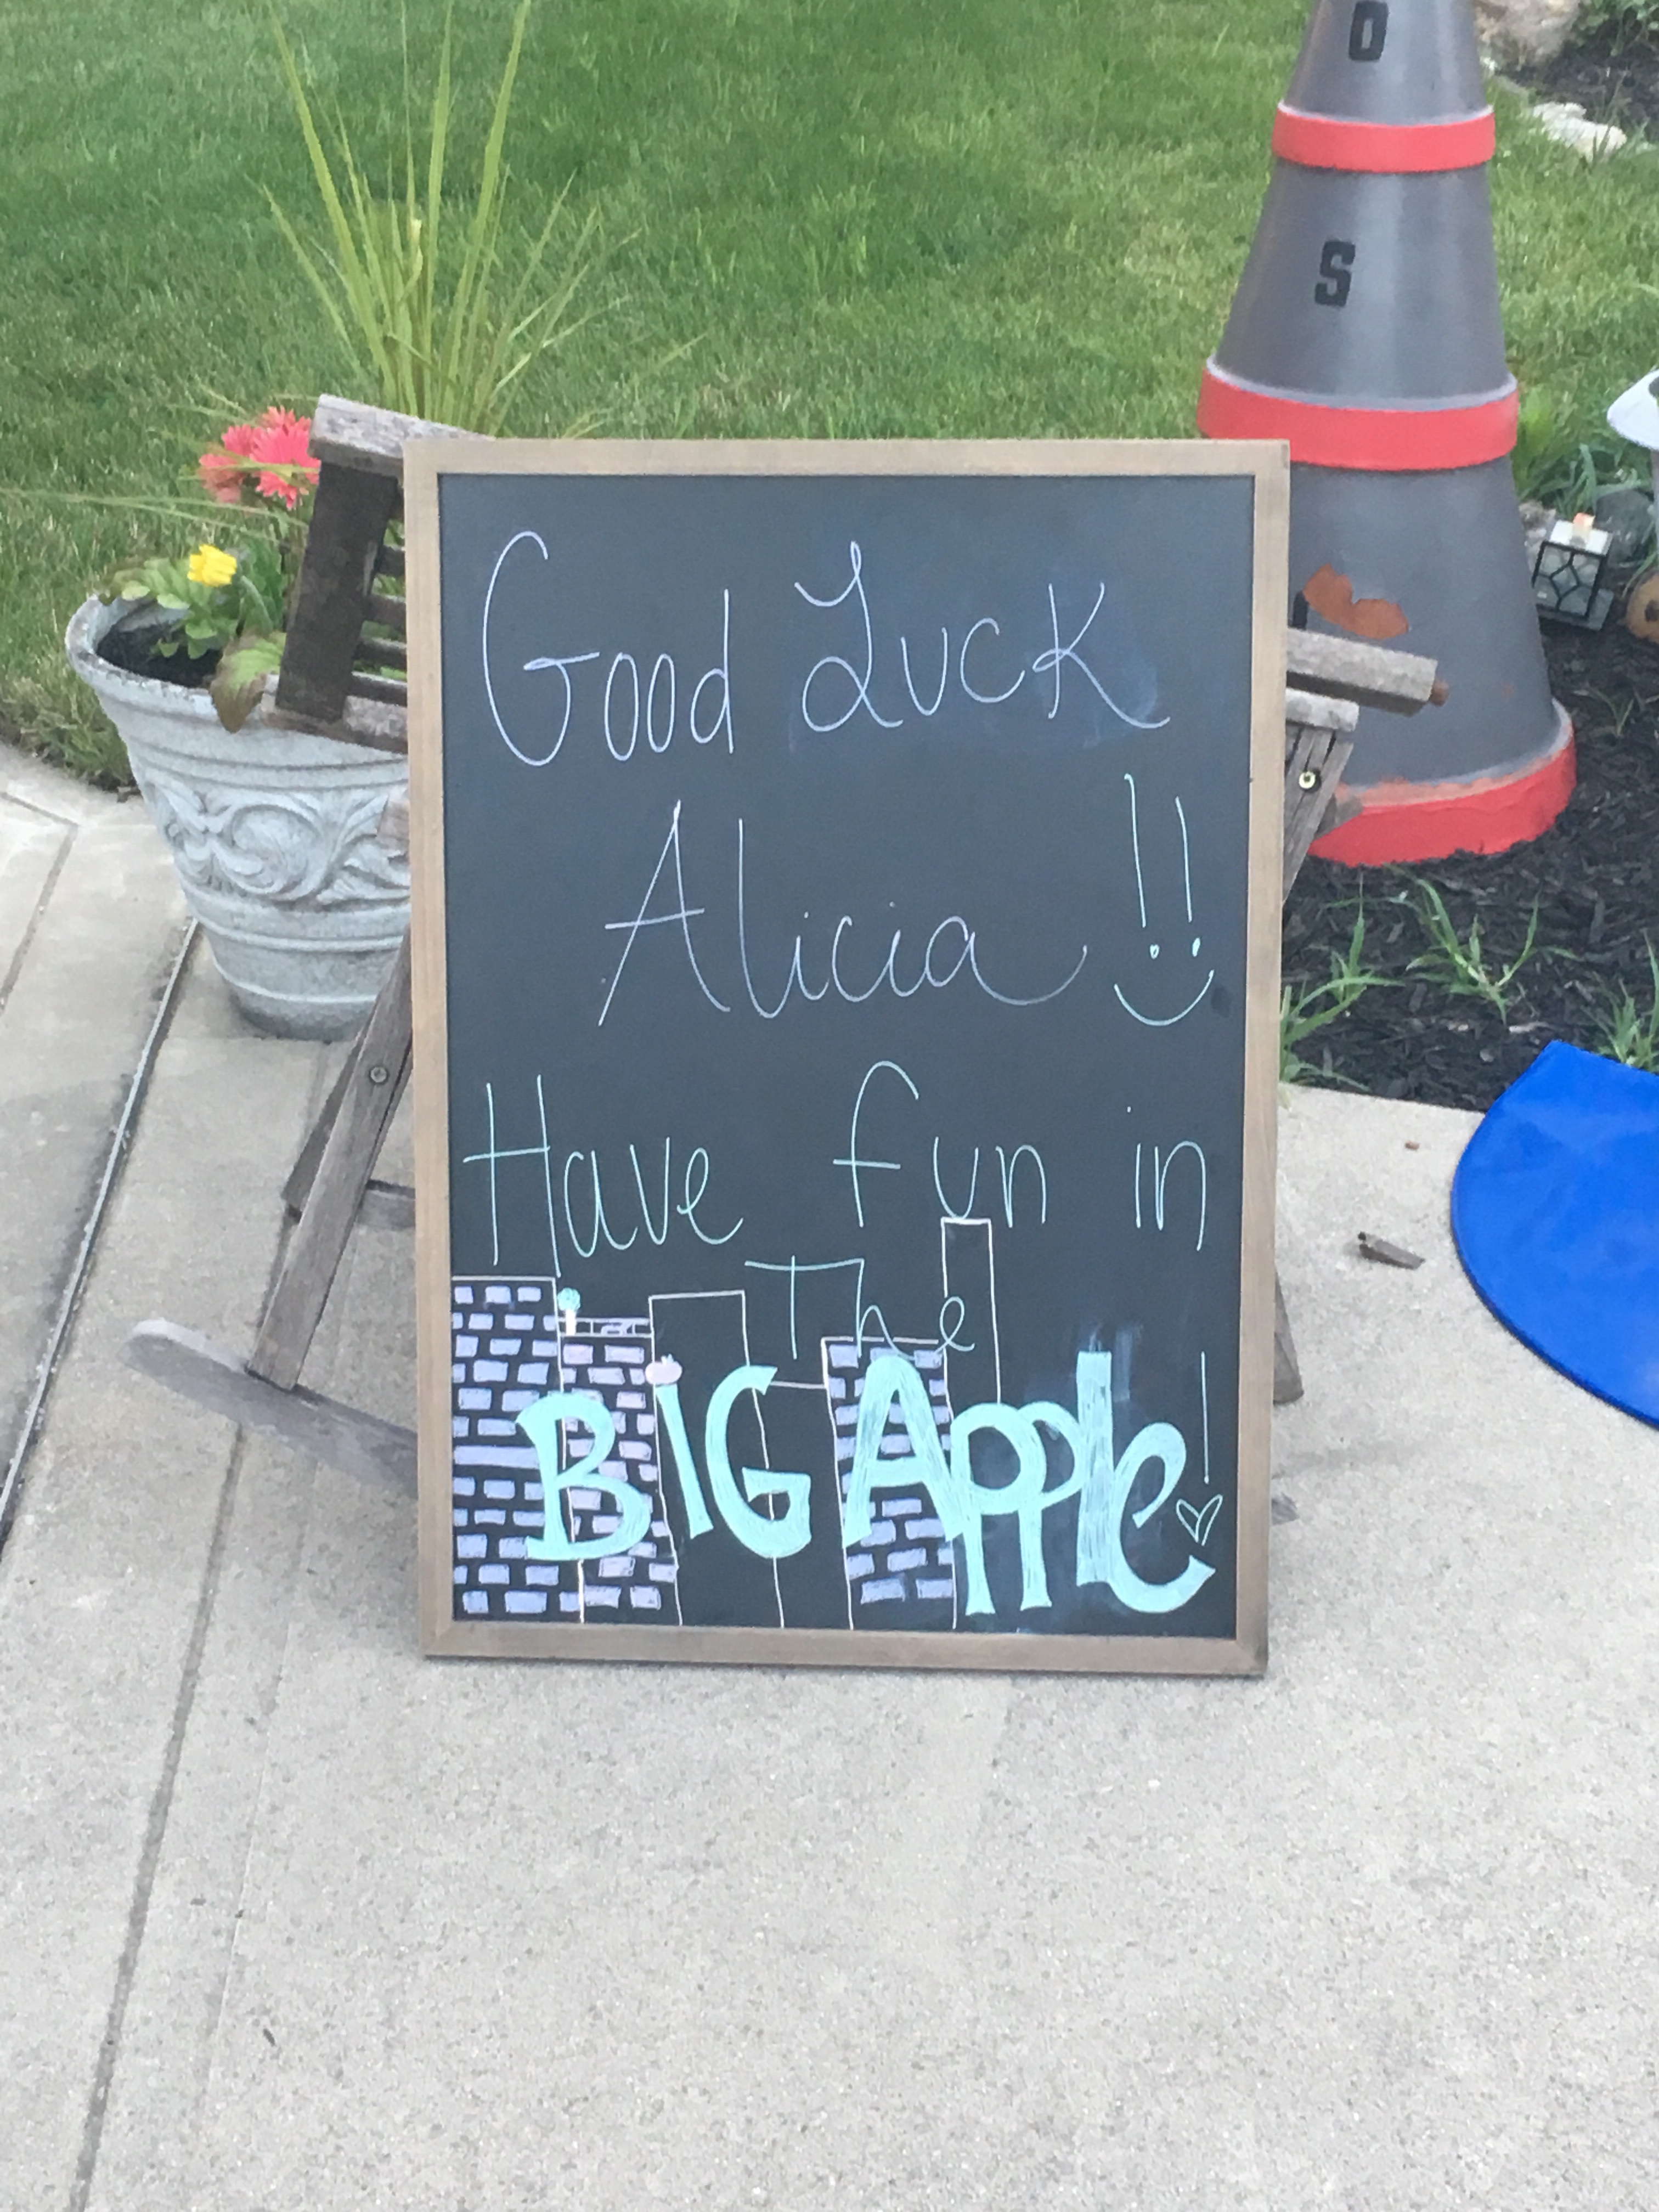 O
S
Good Luck
Alicia !!
Have fun in
The
BIG Apple!